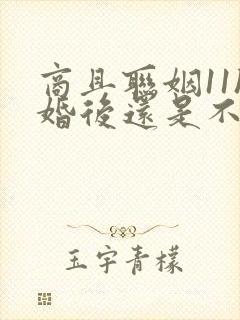 商且聯姻11
婚後還是不
玉宇青檬